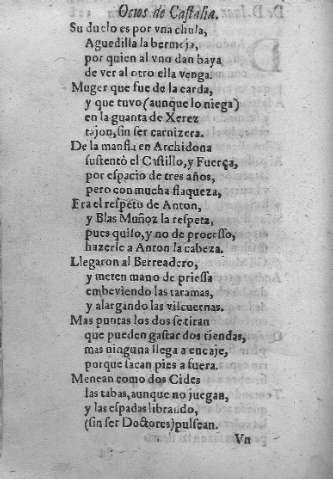 Ocios de Castalia.
Su duelo es por vna chula,
Aguedilla la bermeja,
por quien al vno dan baya
de ver al otro ella venga.
Muger que fue de la carda,
y que tuvo (aunque lo niega)
en la guanta de Xerez
tajon, sin ser carnizera.
De la manfla en Archidona
sustentò el Castillo, y Fuerça,
por espacio de tres años,
pero con mucha flaqueza,
Era el respeto de Anton,
y Blas Muñoz la respeta,
pues quiso, y no de processo,
hazerle a Anton la cabeza.
Llegaron al Berreadero,
y meten mano de priessa
embeviendo las taramas,
y alargando las
Mas puntas los dos se tiran
que pueden gastar dos tiendas,
mas ninguna llega a encaje,
porque sacan pies a fuera.
Menean como dos Cides
las tabas, aunque no juegan,
y las espadas librando,
(sin ser Doctores) pulsean.
Vn